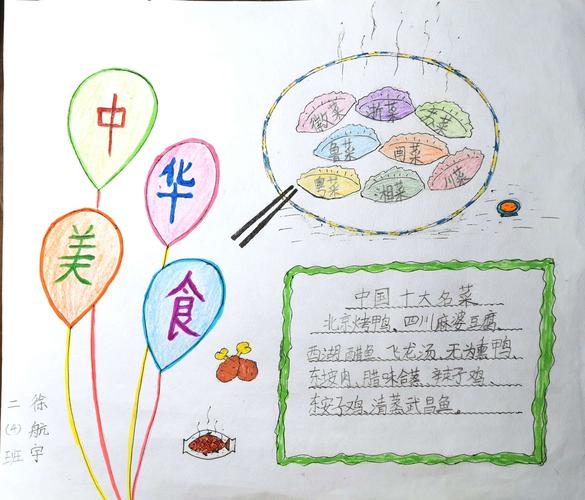 中
华
美
食
徽菜 浙菜 苏菜
鲁菜 闽菜
粤菜 湘菜 川菜
中国十大名菜
北京烤鸭、四川麻婆豆腐
西湖醋鱼、飞龙汤、无为熏鸭、
东坡肉、腊味合蒸、辣子鸡、
东安子鸡、清蒸武昌鱼。
二(4)班
徐航宇